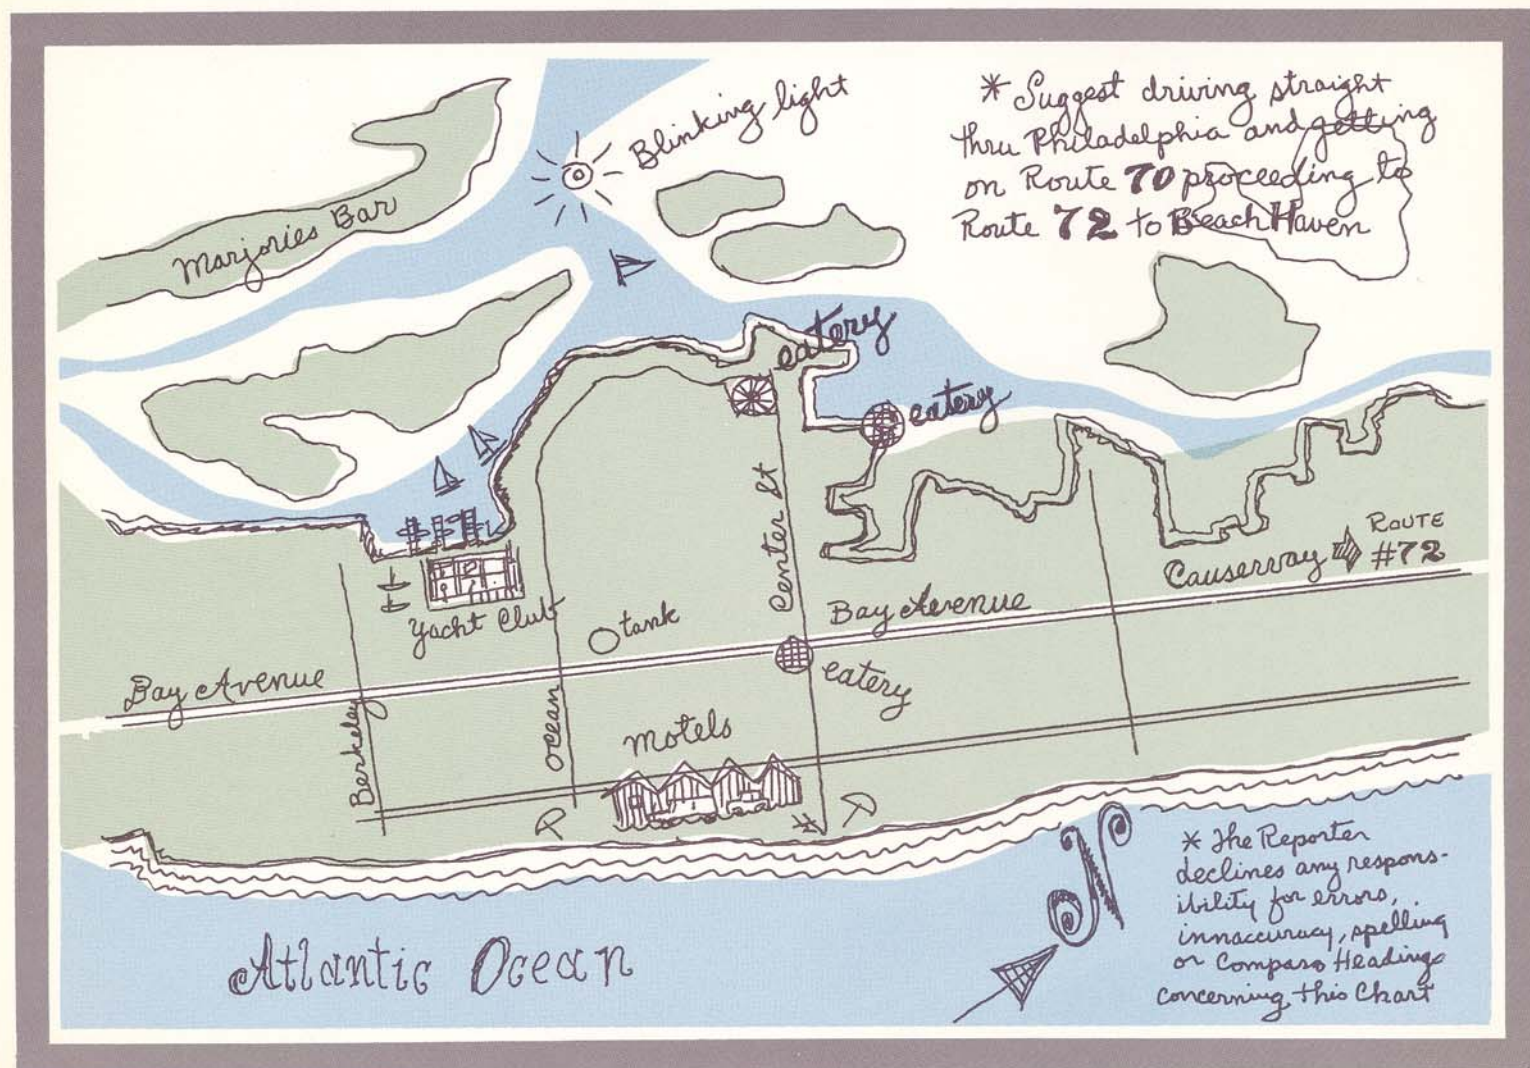 * Suggest driving straight
thru Philadelphia and getting
on Route 70 proceeding to
Route 72 to Beach Haven
Blinking light
Marjories Bar
eatery
eatery
Center St
Route
#72
Causeway
Yacht Club
tank
Bay Avenue
Bay Avenue
eatery
Berkeley
Ocean
Motels
N
* The Reporter
declines any respons-
ibility for errors,
innaccuracy, spelling
or Compass Headings
concerning this Chart
Atlantic Ocean